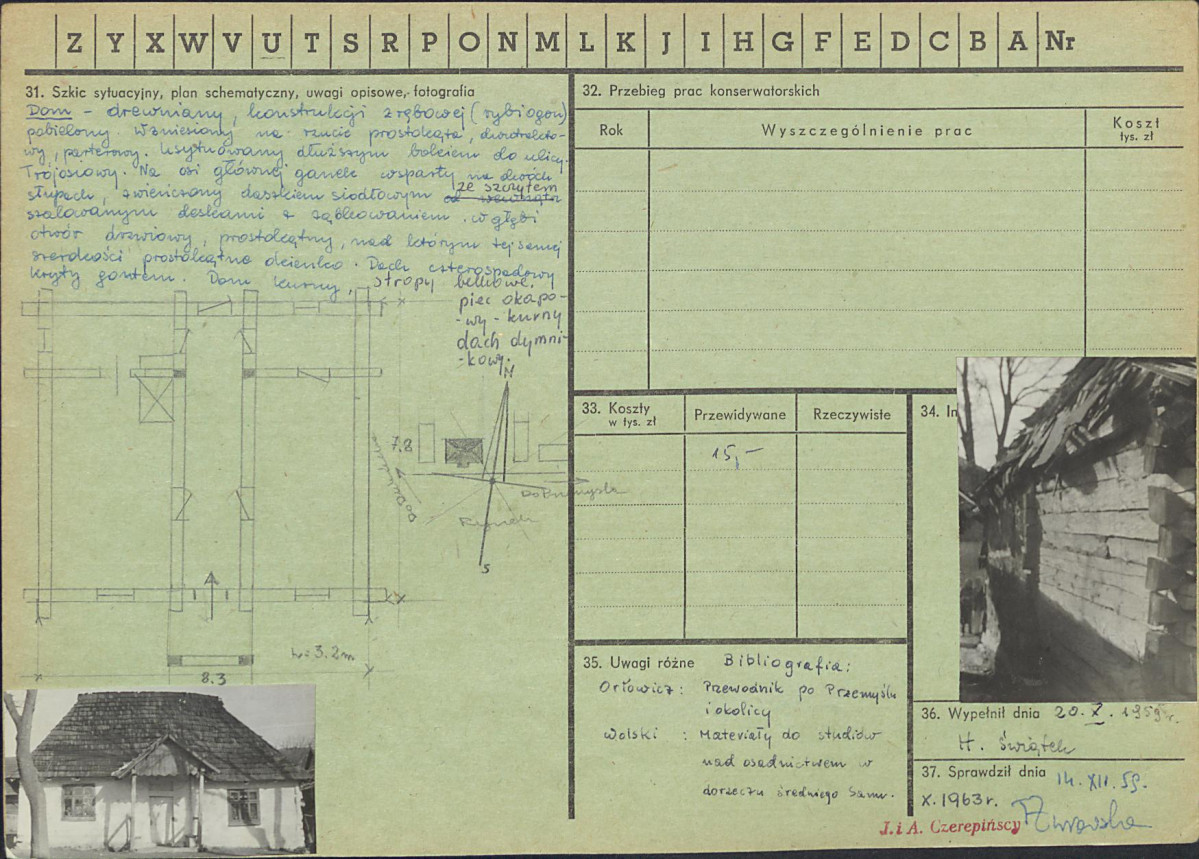 Z Y X W V U T S R P O N M L K J I H G F E D C B A Nr
31. Szkic sytuacyjny, plan schematyczny, uwagi opisowe, fotografia
Dom – drewniany, konstrukcji zrębowej (rybiogon)
pobielony. Wzniesiony na rzucie prostokąta, dwutrakto-
wy, parterowy. Usytuowany dłuższym bokiem do ulicy.
Trójosiowy. Na osi głównej ganek wsparty na dwóch
słupach, zwieńczony daszkiem siodłowym ze szczytem
szalowanym deskami z ząbkowaniem. w głębi
otwór drzwiowy, prostokątny, nad którym tej samej
szerokości prostokątne okienko. Dach czterospadowy
kryty gontem. Dom kurny, stropy belkowe.
piec okapo-
-wy - kurny
dach dymni-
-kowy.
N
7.8
Do Przemyśla
Rynek
S
h=3.2m
8.3
32. Przebieg prac konserwatorskich
Rok
Wyszczególnienie prac
Koszt
tys. zł
33. Koszty
w tys. zł
Przewidywane
Rzeczywiste
15,–
34. In
35. Uwagi różne
Bibliografia:
Orłowicz: Przewodnik po Przemyślu
i okolicy
Wolski: Materiały do studiów
nad osadnictwem w
dorzeczu średniego Sanu.
36. Wypełnił dnia 20. X. 1959 r.
H. Świątek
37. Sprawdził dnia 14. XII. 59.
X. 1963 r.
J. i A. Czerepińscy